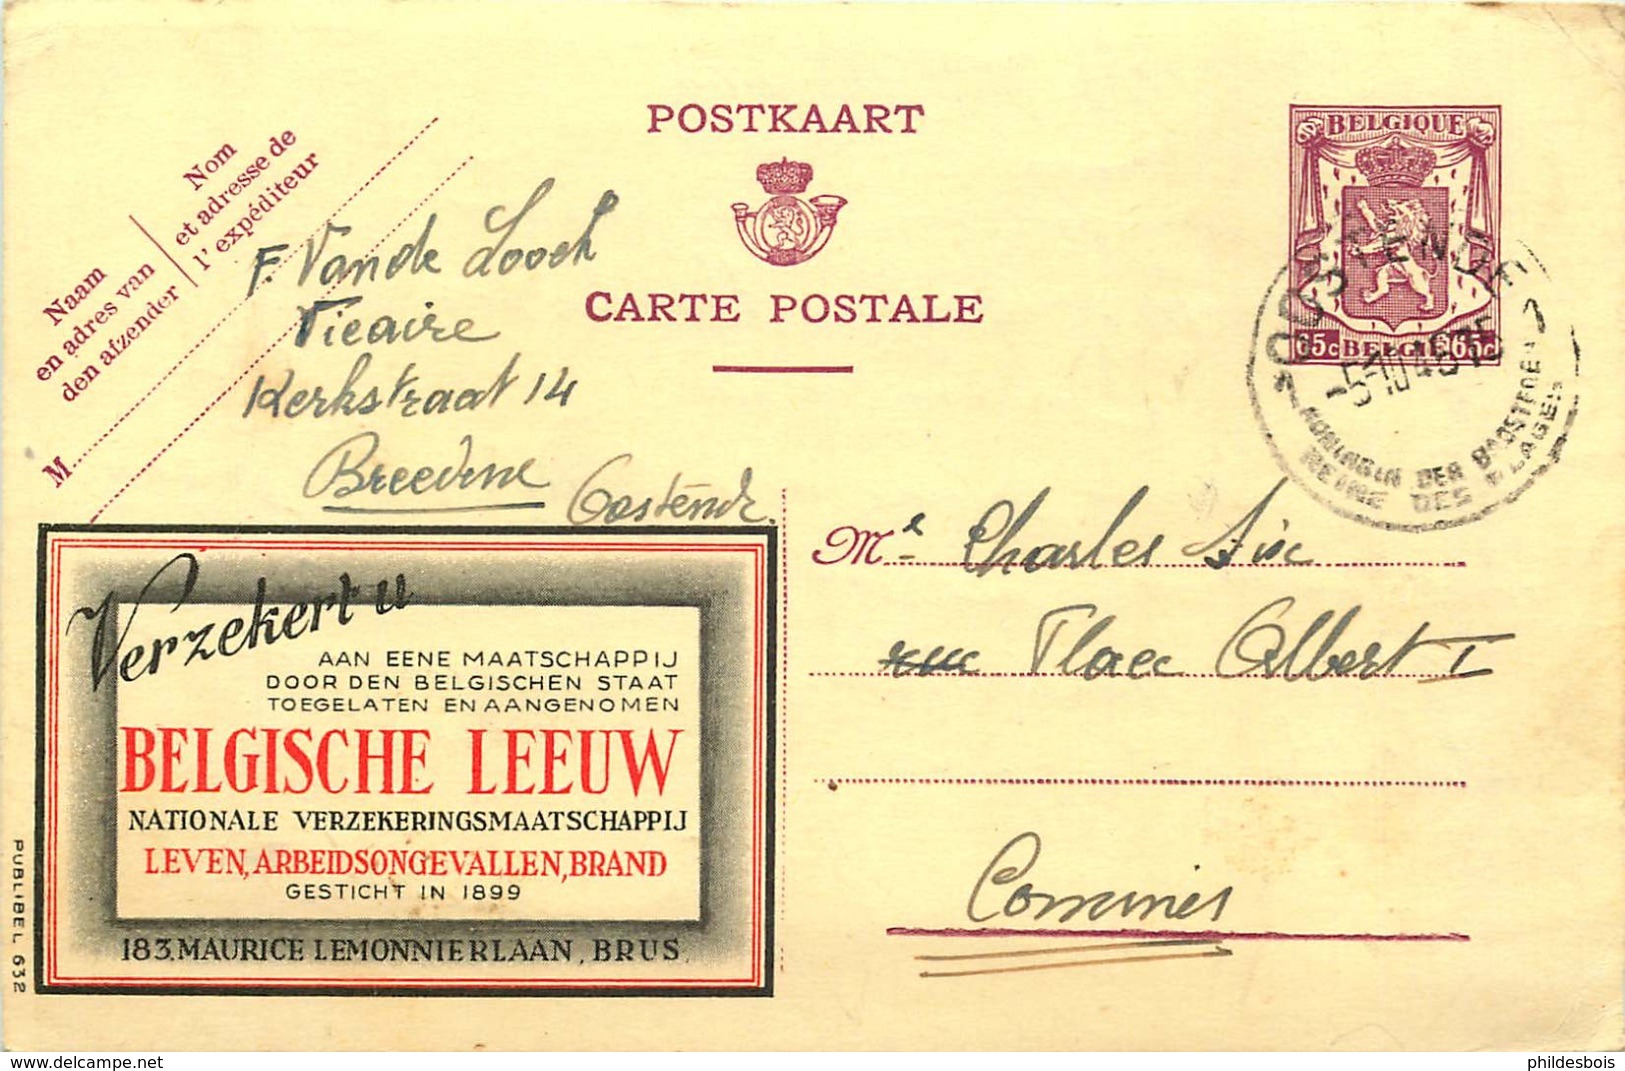 POSTKAART
CARTE POSTALE
BELGIQUE
65c BELGIË 65c
OOSTENDE
-5-10 46
KONINGIN DER BADSTEDEN
REINE DES PLAGES
Nom
et adresse de
l'expéditeur
Naam
en adres van
den afzender
M
F. Van de Looch
Vicaire
Kerkstraat 14
Breedene
Oostende.
Verzekert u
AAN EENE MAATSCHAPPIJ
DOOR DEN BELGISCHEN STAAT
TOEGELATEN EN AANGENOMEN
BELGISCHE LEEUW
NATIONALE VERZEKERINGSMAATSCHAPPIJ
LEVEN, ARBEIDSONGEVALLEN, BRAND
GESTICHT IN 1899
183, MAURICE LEMONNIERLAAN, BRUS.
PUBLIBEL 632
Mr Charles
rue Place Albert I
Commines
phildesbois